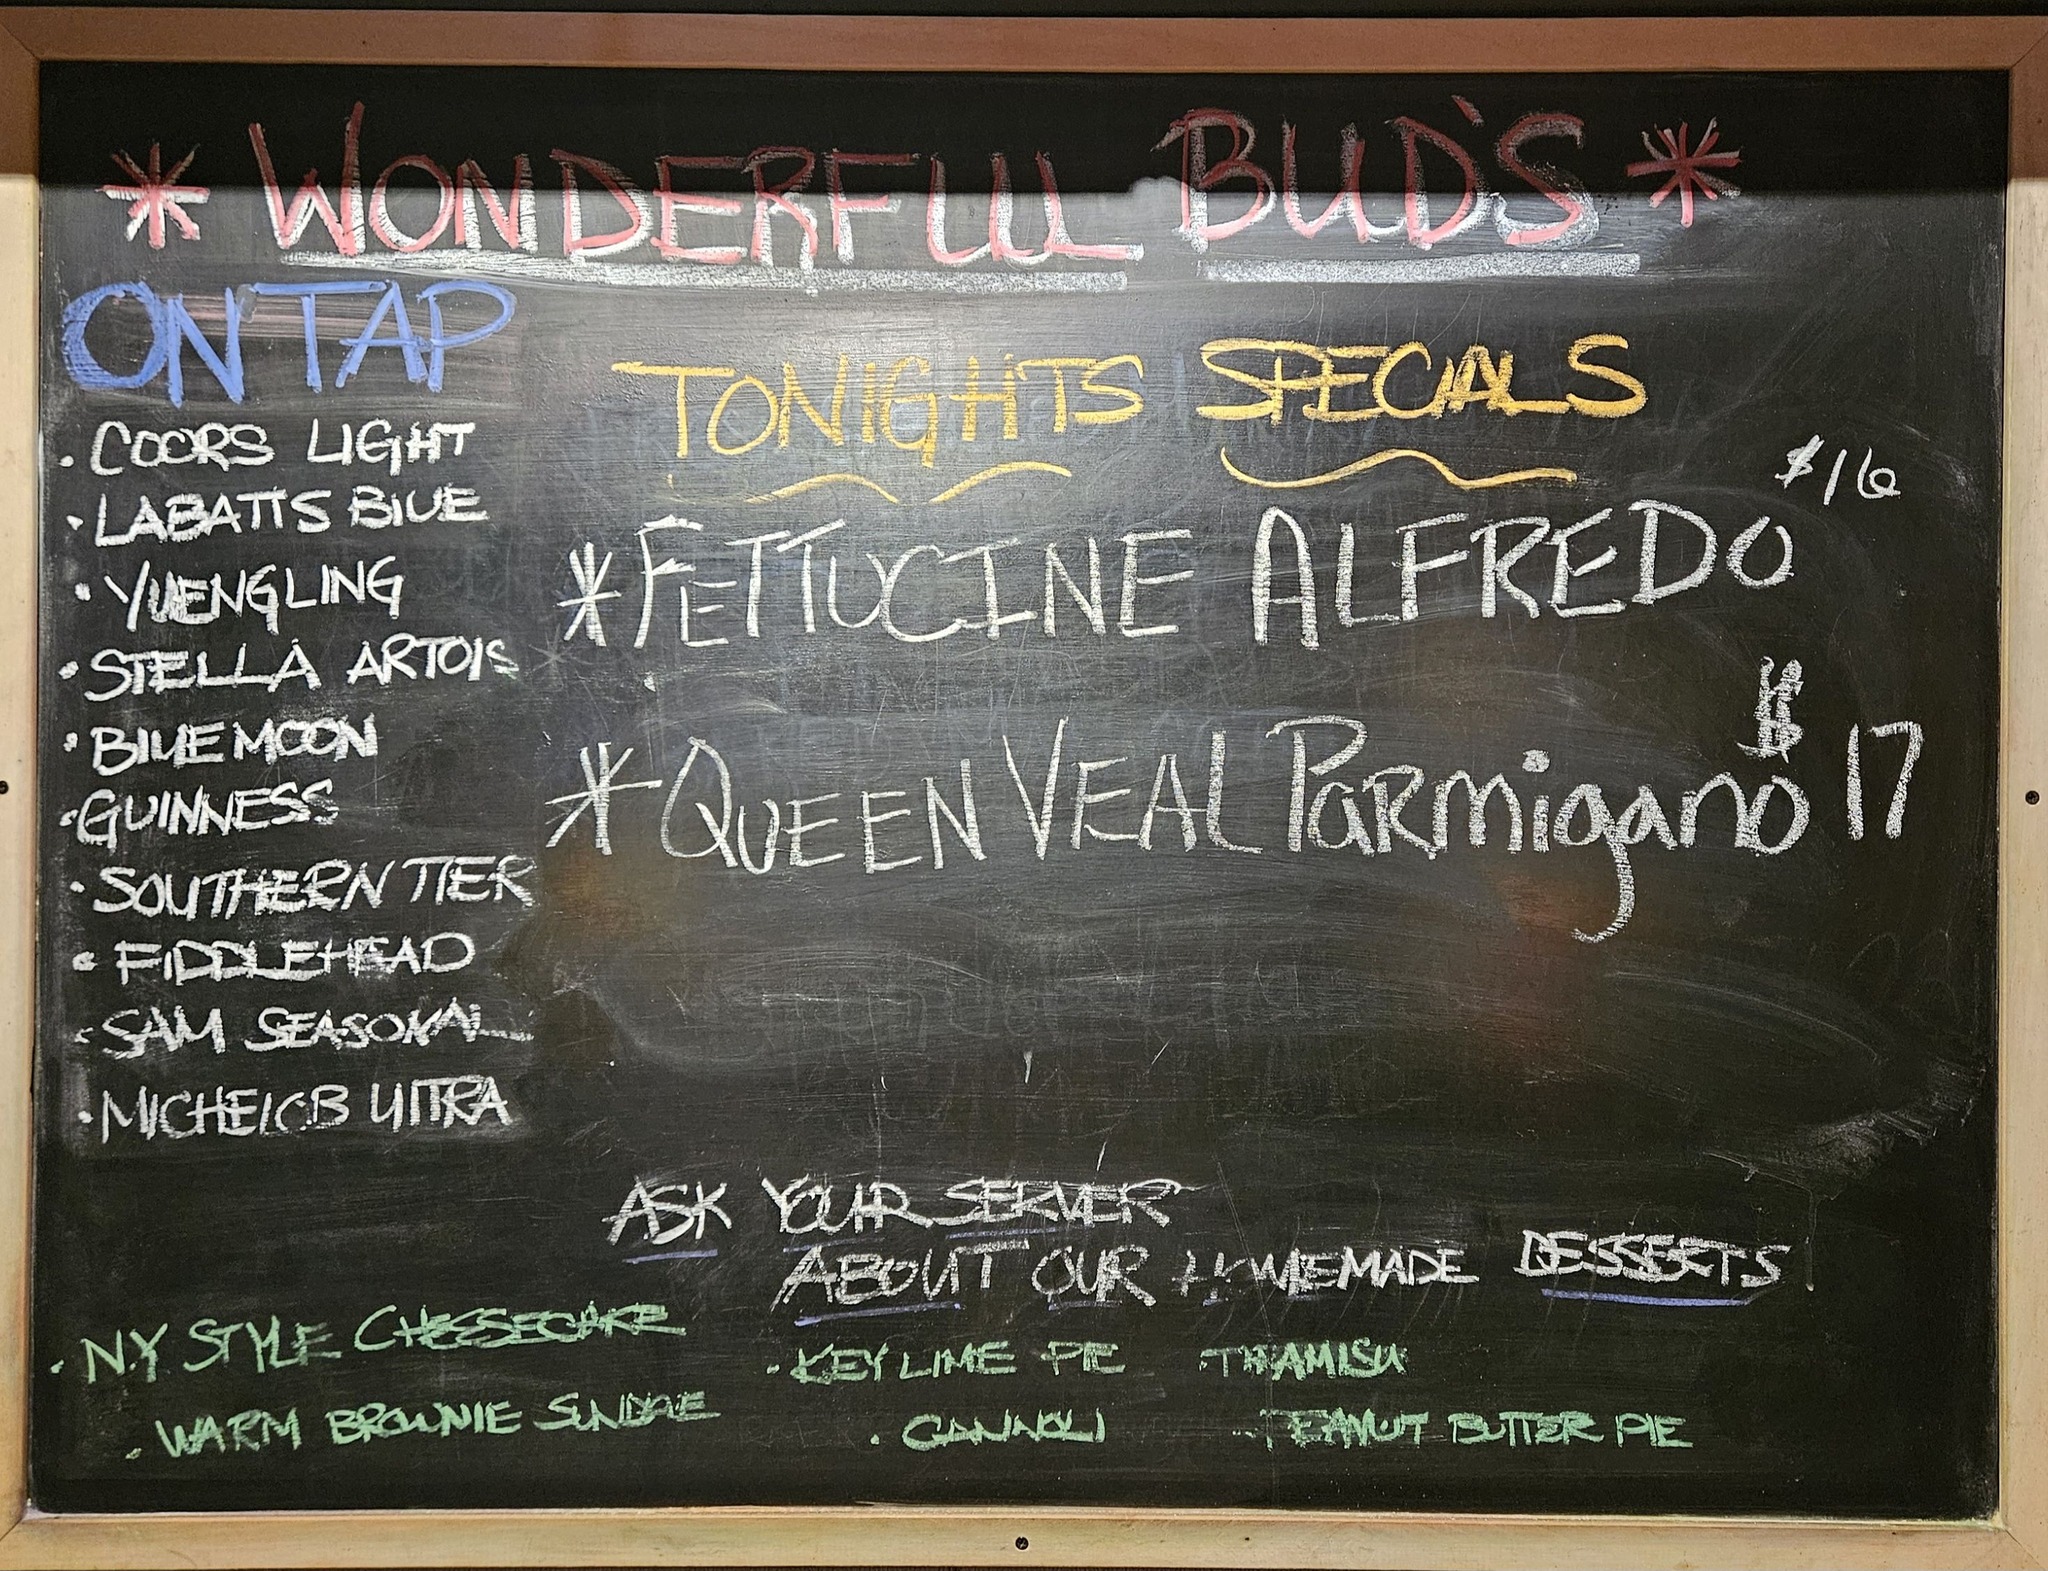 * WONDERFUL BUD'S *
ON TAP
· COORS LIGHT
· LABATTS BLUE
· YUENGLING
· STELLA ARTOIS
· BLUE MOON
· GUINNESS
· SOUTHERN TIER
· FIDDLEHEAD
· SAM SEASONAL
· MICHELOB ULTRA
TONIGHTS SPECIALS
* FETTUCINE ALFREDO $16
* QUEEN VEAL PARMigano $17
ASK YOUR SERVER
ABOUT OUR HOMEMADE DESSERTS
· N.Y STYLE CHEESECAKE
· WARM BROWNIE SUNDAE
· KEY LIME PIE
· CANNOLI
· TIRAMISU
· PEANUT BUTTER PIE